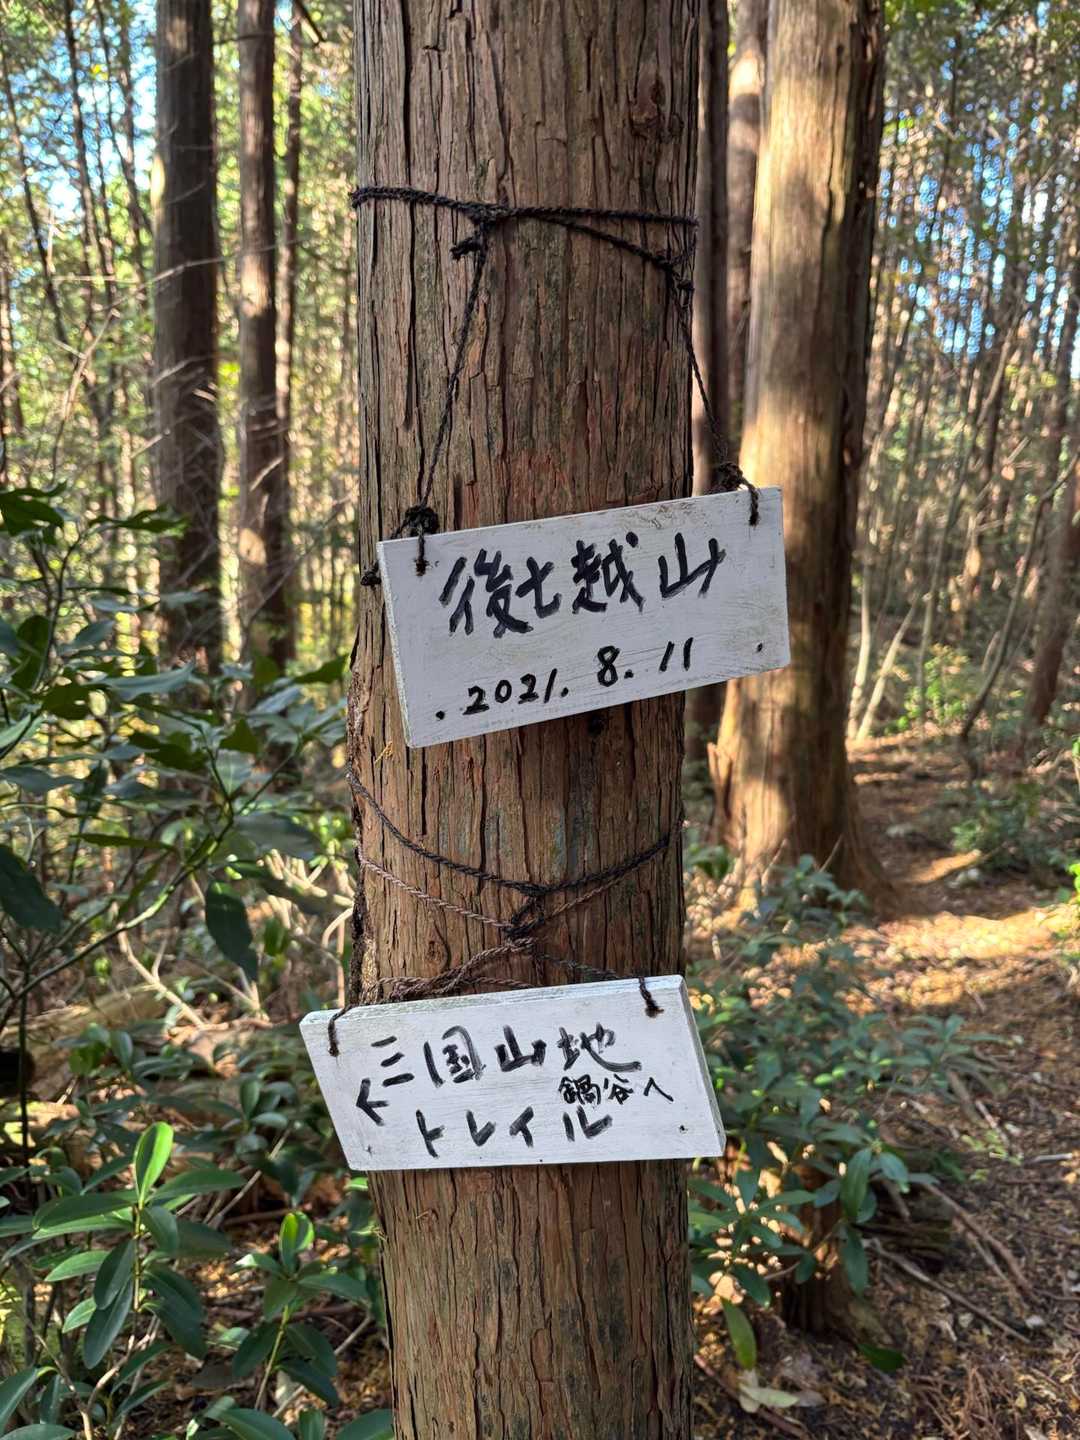 後七越山
.2021.8.11.
三国山地
←
鍋谷へ
トレイル